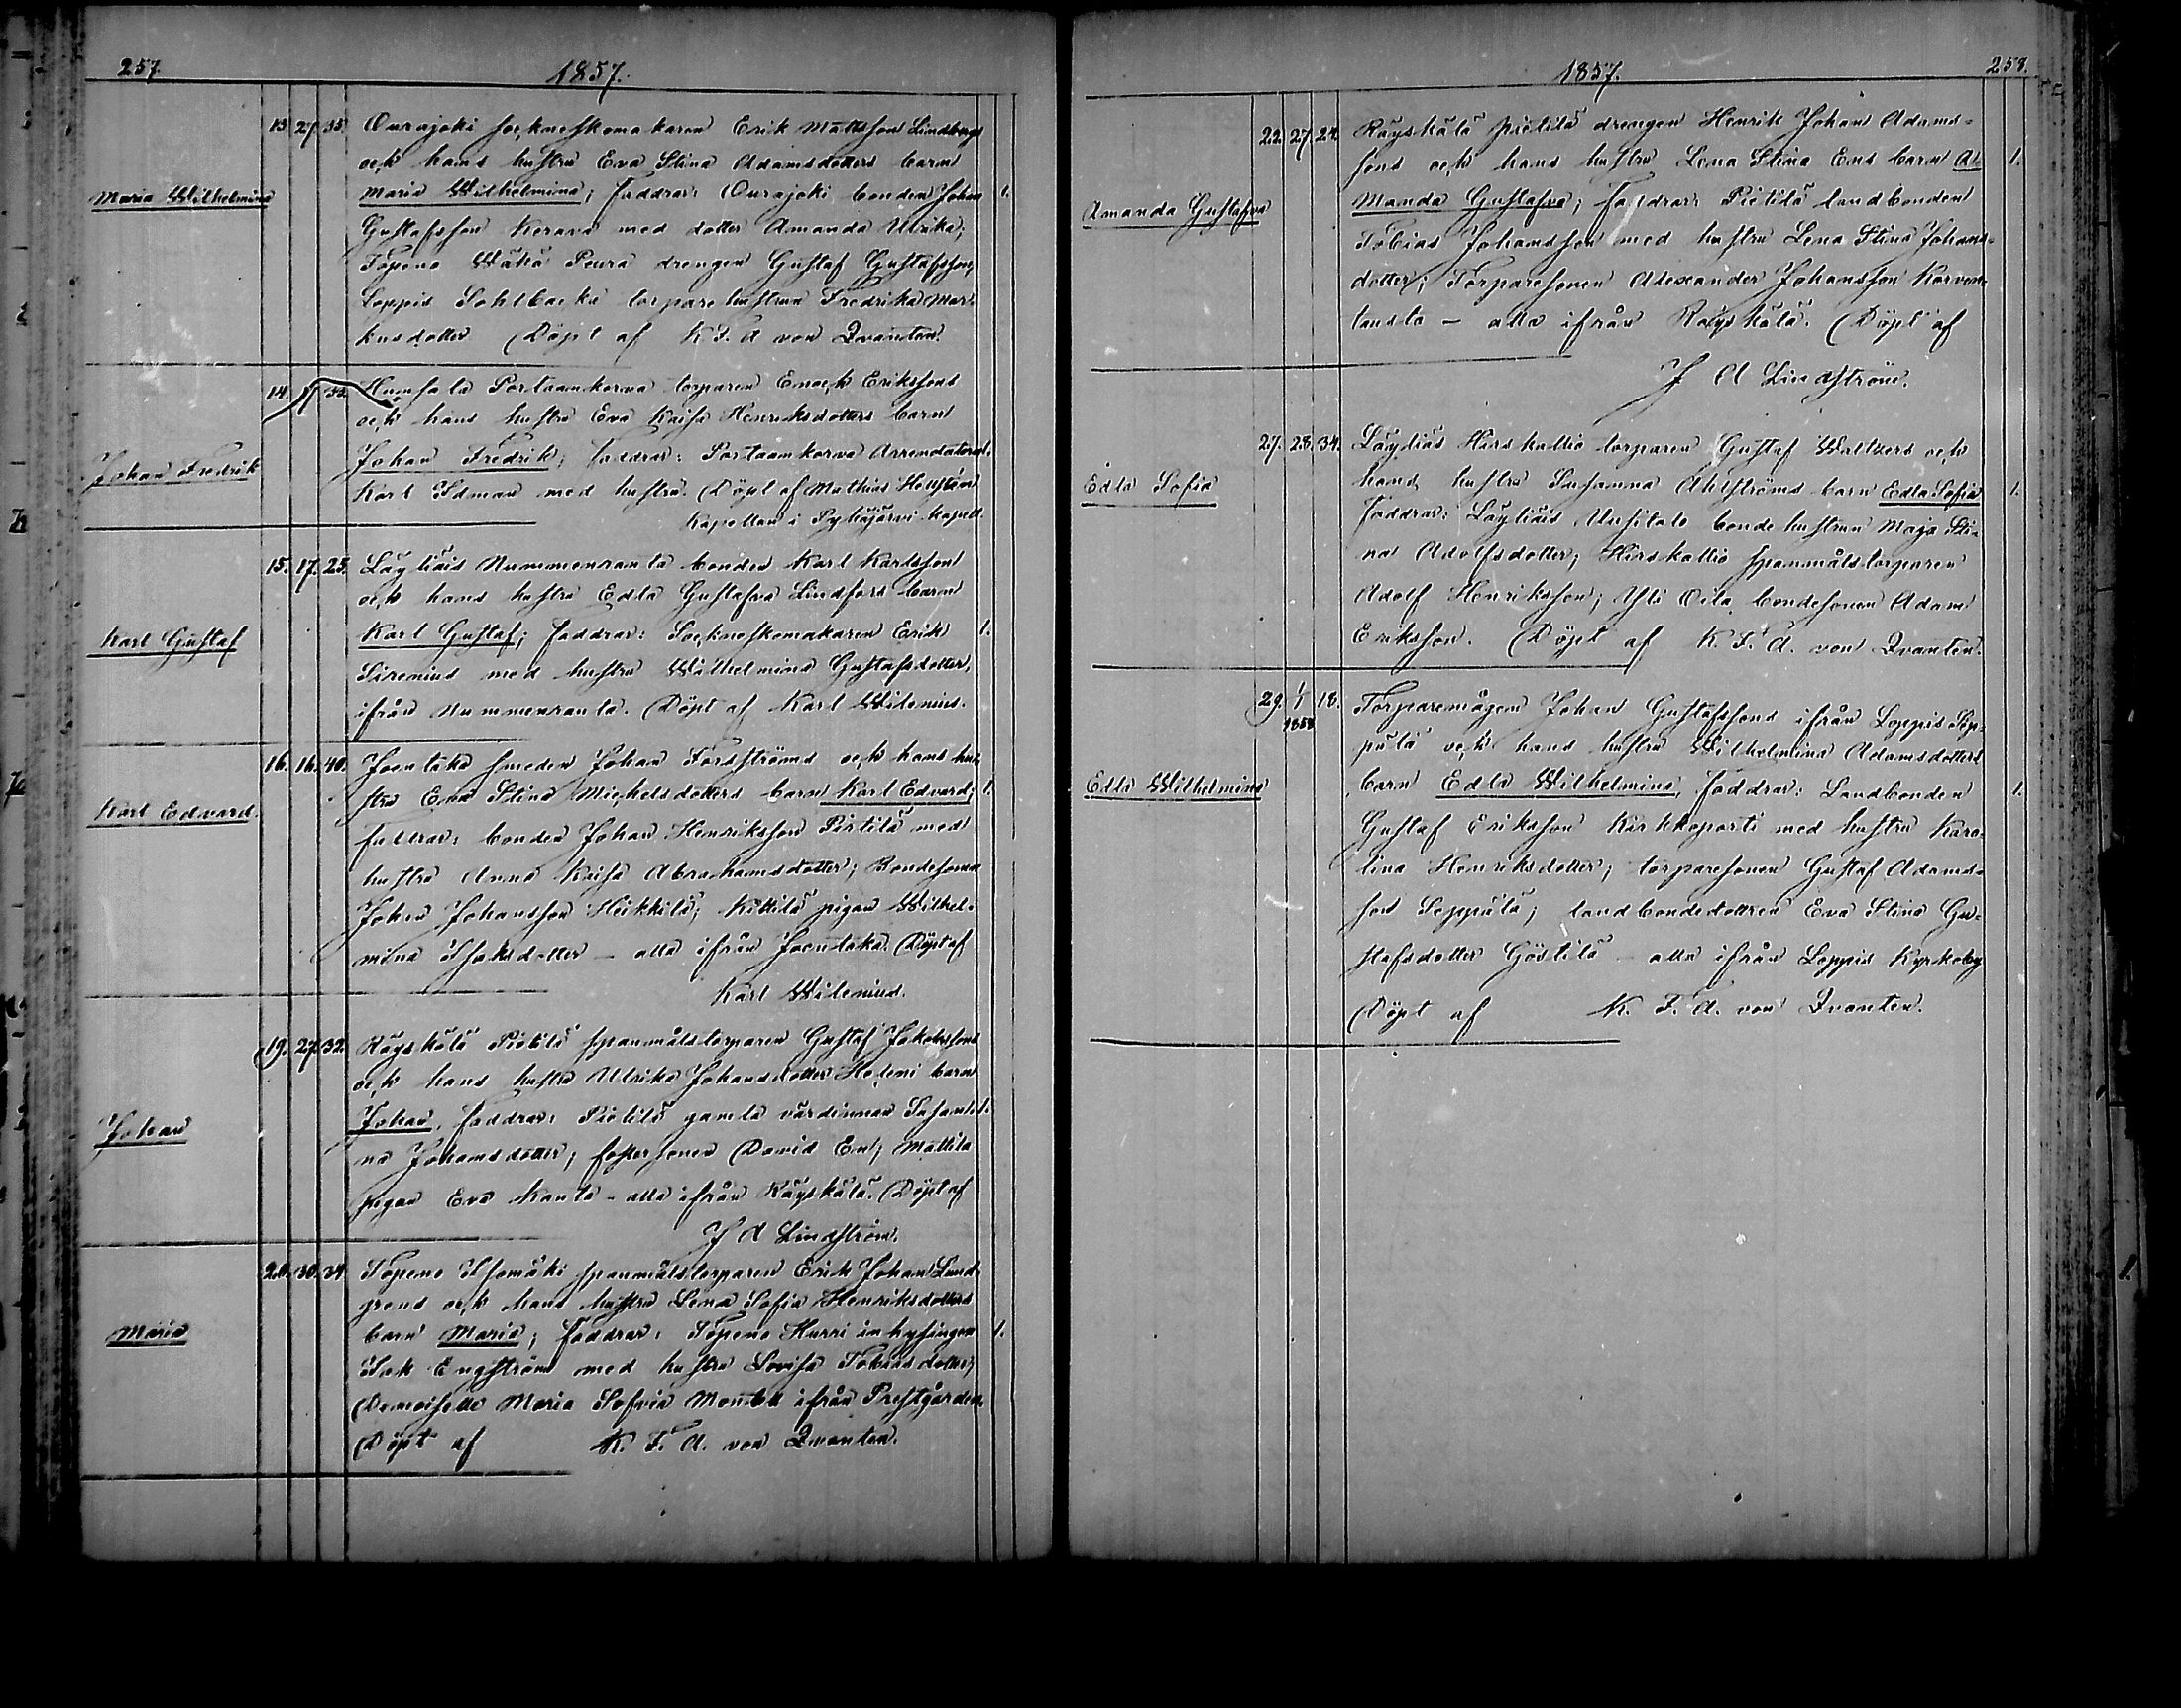 257.
1857.
13. 27. 35. Ourajoki sockneskomakaren Erik Mattsson Lindbergs
och hans hustru Eva Stina Adamsdotters barn
Maria Wilhelmina
Maria Wilhelmina; Faddrar: Ourajoki bonden Johan 1.
Gustafsson Kerava med dotter Amanda Ulrika;
Topeno Wähä Peura drengen Gustaf Gustafsson,
Loppis Sohlbacka torpare hustrun Fredrika Mar-
kusdotter Döpt af K. F. A von Qvanten.
14. 17 Portaankorva torparen Enoch Erikssons
och hans hustru Eva Kaisa Henriksdotters barn
Johan Fredrik
Johan Fredrik; Faddrar: Portaankorva Arrendatorn 1.
Karl Idman med hustru. Döpt af Mathias Hellstén
Kapellan i Pyhäjärvi Kapell.
15. 17. 25. Läyliäis Nummenranta bonden Karl Karlsson
och hans hustru Edla Gustafva Lindfors barn
Karl Gustaf
Karl Gustaf; Faddrar: Sockneskomakaren Erik 1.
Sirenius med hustru Wilhelmina Gustafsdotter,
ifrån Nummenranta. Döpt af Karl Wilenius.
16. 16. 40. Joentaka smeden Johan Forsströms och hans hu-
stru Eva Stina Michelsdotters barn Karl Edvard; 1.
Karl Edvard.
faddrar: bonden Johan Henriksson Pirtilä med
hustru Anna Kaisa Abrahamsdotter; Bondesonen
Johan Johansson Heikkilä; Kittilä pigan Wilhel-
mina Isaksdotter – alla ifrån Joentaka. Döpt af
Karl Wilenius.
19. 27. 32. Räyskälä Pietilä spanmålstorparen Gustaf Jakobssons
och hans hustru Ulrika Johansdotter Hoseni barn
Johan
Johan, faddrar: Pietilä gamla värdinnan Susan- 1.
na Johansdotter; fostersonen David En; Mattila
pigan Eva Kanta – alla ifrån Räyskälä. Döpt af
J A Lindström.
20. 30. 34 Topeno Isomäki spanmålstorparen Erik Johan Lund-
grens och hans hustru Lena Sofia Henriksdotters
Maria
barn Maria; faddrar: Topeno Hurri inhysingen 1.
Isak Engström med hustru Lovisa Tobiasdotter;
Demoiselle Maria Sofia Montell ifrån Prestgården.
Döpt af K. F. A. von Qvanten.
1857.
258.
22. 27. 24. Räyskälä Pietilä drengen Henrik Johan Adams-
sons och hans hustru Lena Stina Ens barn A- 1.
Amanda Gustafva
manda Gustafva; faddrar: Pietilä landbonden
Tobias Johansson med hustru Lena Stina Johans-
dotter; Torparesonen Alexander Johansson Korven-
tausta – alla ifrån Räyskälä. Döpt af
J A Lindström.
27. 28. 34. Läyliäis Hirskallio torparen Gustaf Walltzers och
Edla Sofia
hans hustru Susanna Ahlströms barn Edla Sofia 1.
Faddrar: Läyliäis Uusitalo bonde hustrun Maja Sti-
na Adolfsdotter; Hirskallio spanmålstorparen
Adolf Henriksson; Yli Oila bondesonen Adam
Eriksson. Döpt af K. F. A. von Qvanten.
29. 1/1 1858 18. Torparemågen Johan Gustafssons ifrån Loppis Sep-
pälä och hans hustru Wilhelmina Adamsdotters
Edla Wilhelmina
barn Edla Wilhelmina, faddrar: Landbonden 1.
Gustaf Eriksson Kirkkoporti med hustru Karo-
lina Henriksdotter; torparesonen Gustaf Adams-
son Seppälä; landbondedottren Eva Stina Gu-
stafsdotter Göstilä – alla ifrån Loppis Kyrkoby
Döpt af K. F. A. von Qvanten.